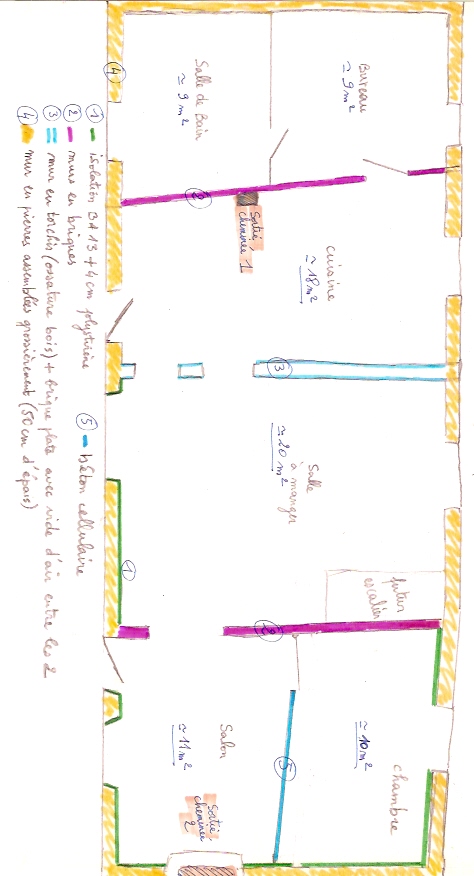 Bureau
≃ 9 m²
Salle de Bain
≃ 9 m²
④
②
Sortie
cheminée 1
cuisine
≃ 18 m²
③
Salle
à manger
≃ 20 m²
①
futur
escalier
②
Salon
≃ 11 m²
⑤
chambre
≃ 10 m²
Sortie
cheminée
2
① isolation BA 13 + 4 cm polystirène
② murs en briques
③ mur en torchis (ossature bois) + brique plate avec vide d'air entre les 2
④ mur en pierres assemblées grossièrement (50 cm d'épais)
⑤ béton cellulaire